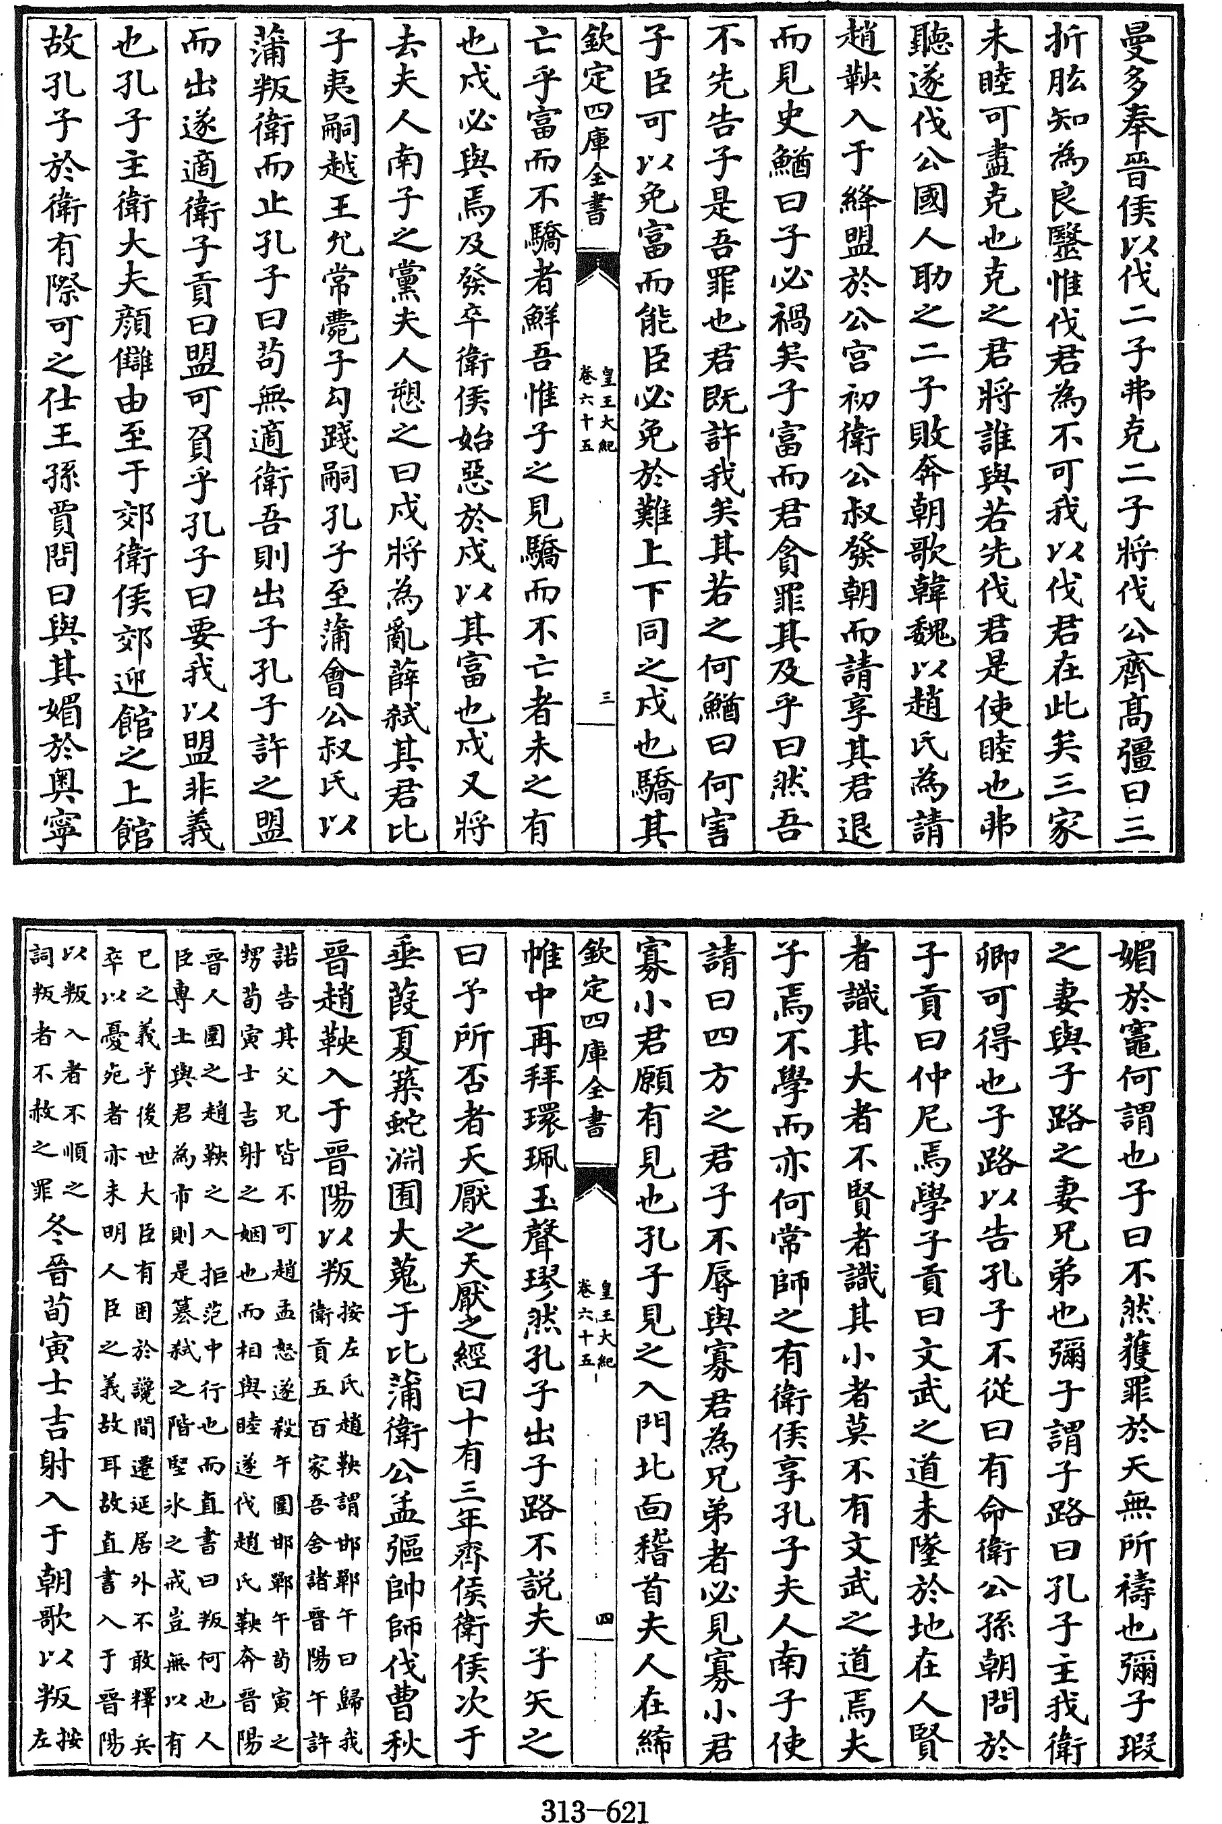 曼多奉晉侯以伐二子弗克二子將伐公齊高彊曰三
折肱知為良醫惟伐君為不可我以伐君在此矣三家
未睦可盡克也克之君將誰與若先伐君是使睦也弗
聽遂伐公國人助之二子敗奔朝歌韓魏以趙氏為請
趙鞅入于絳盟於公宮初衛公叔發朝而請享其君退
而見史鰌曰子必禍矣子富而君貪罪其及乎曰然吾
不先告子是吾罪也君既許我矣其若之何鰌曰何害
子臣可以免富而能臣必免於難上下同之戍也驕其
欽定四庫全書
皇王大紀
卷六十五
三
亡乎富而不驕者鮮吾惟子之見驕而不亡者未之有
也戍必與焉及發卒衛侯始惡於戍以其富也戍又將
去夫人南子之黨夫人愬之曰戍將為亂薛弑其君比
子夷嗣越王允常薨子勾踐嗣孔子至蒲會公叔氏以
蒲叛衛而止孔子曰苟無適衛吾則出子孔子許之盟
而出遂適衛子貢曰盟可負乎孔子曰要我以盟非義
也孔子主衛大夫顔讎由至于郊衛侯郊迎館之上館
故孔子於衛有際可之仕王孫賈問曰與其媚於奥寧
媚於竈何謂也子曰不然獲罪於天無所禱也彌子瑕
之妻與子路之妻兄弟也彌子謂子路曰孔子主我衛
卿可得也子路以告孔子不從曰有命衛公孫朝問於
子貢曰仲尼焉學子貢曰文武之道未墜於地在人賢
者識其大者不賢者識其小者莫不有文武之道焉夫
子焉不學而亦何常師之有衛侯享孔子夫人南子使
請曰四方之君子不辱與寡君為兄弟者必見寡小君
寡小君願有見也孔子見之入門北面稽首夫人在絺
欽定四庫全書
皇王大紀
卷六十五
四
帷中再拜環珮玉聲璆然孔子出子路不説夫子矢之
曰予所否者天厭之天厭之經曰十有三年齊侯衛侯次于
垂葭夏築蛇淵囿大蒐于比蒲衛公孟彄帥師伐曹秋
晉趙鞅入于晉陽以叛
按左氏趙鞅謂邯鄲午曰歸我
衛貢五百家吾舍諸晉陽午許
諾告其父兄皆不可趙孟怒遂殺午圍邯鄲午荀寅之
甥荀寅士吉射之姻也而相與睦遂伐趙氏鞅奔晉陽
晉人圍之趙鞅之入拒范中行也而直書曰叛何也人
臣專土與君為市則是簒弑之階堅氷之戒豈無以有
巳之義乎後世大臣有困於讒間遷延居外不敢釋兵
卒以憂死者亦未明人臣之義故耳故直書入于晉陽
以叛入者不順之
詞叛者不赦之罪
冬晉荀寅士吉射入于朝歌以叛
按
左
313-621